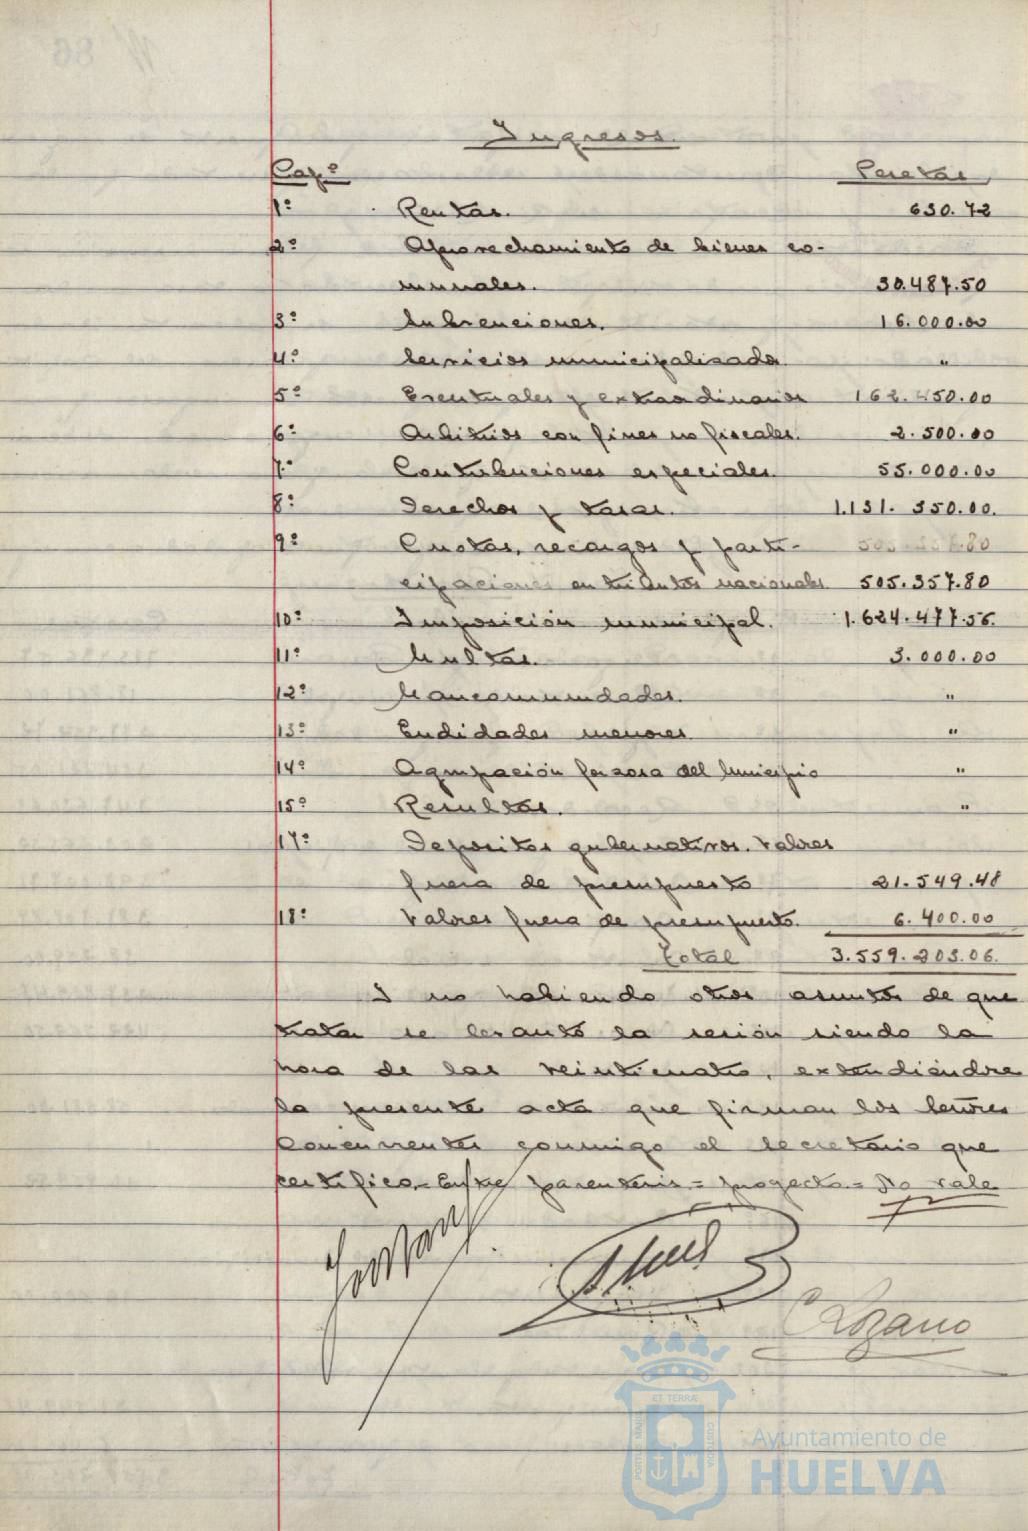 Ingresos
Capº Pesetas
1º Rentas. 630.72
2º Aprovechamiento de bienes co-
munales. 30.487.50
3º Subvenciones. 16.000.00
4º Servicios municipalizados "
5º Eventuales y extraordinarios 162.450.00
6º Arbitrios con fines no fiscales. 2.500.00
7º Contribuciones especiales. 55.000.00
8º Derechos y tasas. 1.131.350.00.
9º Cuotas, recargos y parti-
cipaciones en tributos nacionales 505.357.80
10º Imposición municipal. 1.624.477.56.
11º Multas. 3.000.00
12º Mancomunidades. "
13º Endidades menores "
14º Agrupación forzosa del Municipio "
15º Resultas. "
17º Depositos gubernativos. Valores
fuera de presupuesto 21.549.48
18º Valores fuera de presupuesto. 6.400.00
Total 3.559.203.06.
Y no habiendo otros asuntos de que
tratar se levantó la sesión siendo la
hora de las veinticuatro, extendiéndose
la presente acta que firman los Señores
Concurrentes conmigo el Secretario que
certifico.= Entre parentesis = proyecto.= No vale
C Lozano
ET TERRÆ
PORTUS MARIS
CUSTODIA
Ayuntamiento de
HUELVA